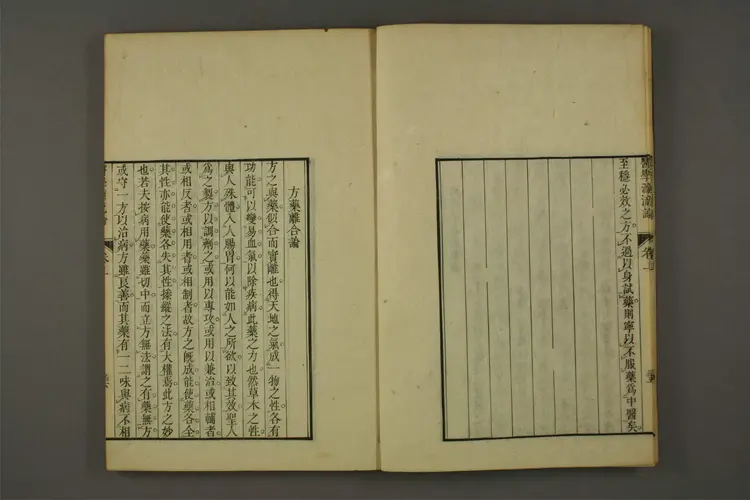 醫學源流論
卷上
至穩必效之方不過以身試藥則寧以不服藥爲中醫矣
方藥離合論
方之與藥似合而實離也得天地之氣成一物之性各有
功能可以變易血氣以除疾病此藥之力也然草木之性
與人殊體入人腸胃何以能如人之所欲以致其效聖人
爲之製方以調劑之或用以專攻或用以兼治或相輔者
或相反者或相用者或相制者故方之既成能使藥各全
其性亦能使藥各失其性操縱之法有大權焉此方之妙
也若夫按病用藥藥雖切中而立方無法謂之有藥無方
或守一方以治病方雖良善而其藥有一二味與病不相